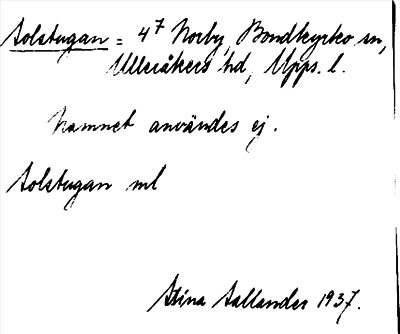 Solstugan = 4⁷ Norby, Bondkyrko sn,
Ulleråkers hd, Upps. l.
Namnet användes ej.
Solstugan ml
Stina Sallander 1937.